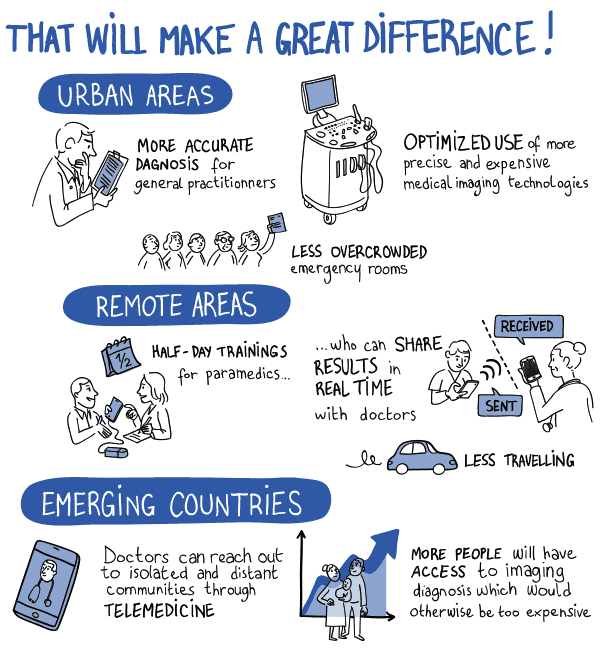 THAT WILL MAKE A GREAT DIFFERENCE!
URBAN AREAS
MORE ACCURATE
DAGNOSIS for
general practitionners
OPTIMIZED USE of more
precise and expensive
medical imaging technologies
LESS OVERCROWDED
emergency rooms
REMOTE AREAS
1/2
HALF-DAY TRAININGS
for paramedics...
...who can SHARE
RESULTS in
REAL TIME
with doctors
RECEIVED
SENT
LESS TRAVELLING
EMERGING COUNTRIES
Doctors can reach out
to isolated and distant
communities through
TELEMEDICINE
MORE PEOPLE will have
ACCESS to imaging
diagnosis which would
otherwise be too expensive